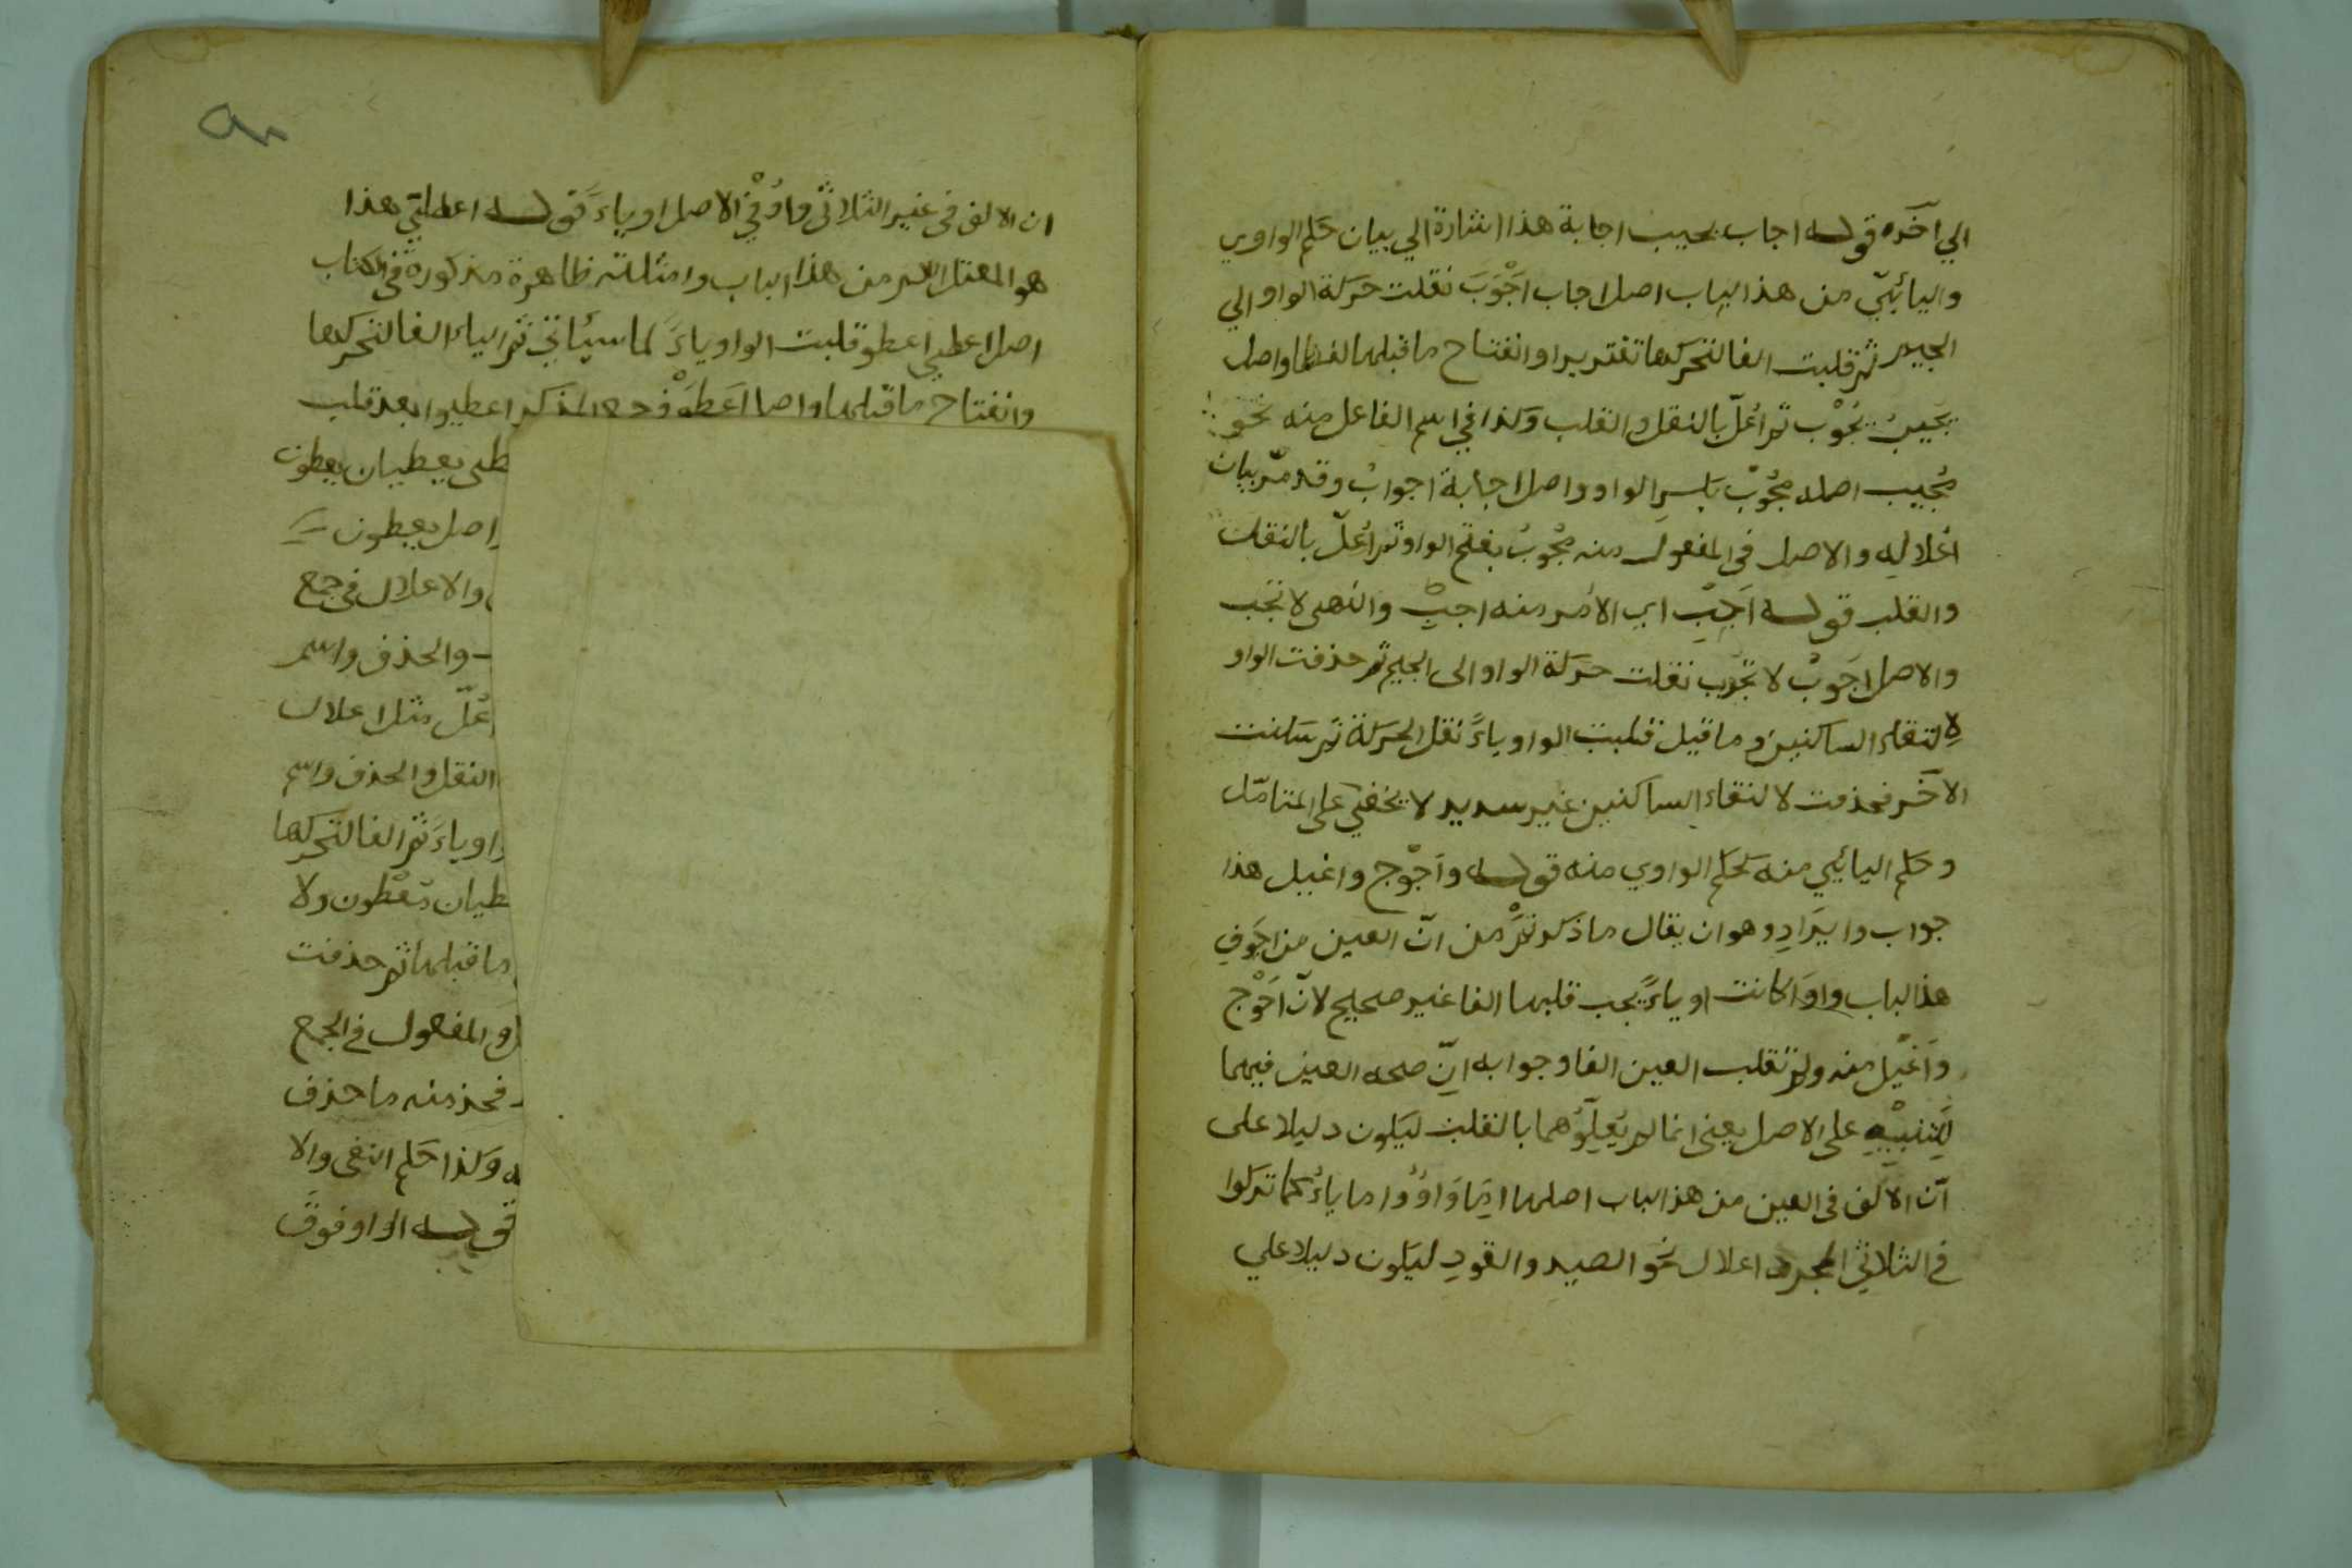 الي آخره قوله اجاب يجيب اجابة هذا اشارة الي بيان حكم الواوي
واليائيّ من هذا الباب اصل اجاب اَجْوَبَ نقلت حركة الواو الي
الجيم ثم قلبت الفا لتحركها تقديرا وانفتاح ما قبلها لفظا واصل
يجيبُ يُجْوِب ثم اُعلّ بالنقل والقلب وكذا في اسم الفاعل منه نحو
مُجيب اصله مُجْوِبٌ بكسرِ الواو واصل اجابة اجوابٌ وقد مرّ بيان
اعْلالِه والاصل في المفعول منه مُجْوَبٌ بفتح الواو ثم اُعلّ بالنقل
والقلب قوله اَجِبْ اي الامر منه اجبْ والنهى لا تجب
والاصل اجوِبْ لا تجْوِب نقلت حركة الواو الى الجيم ثم حذفت الواو
لالتقاء الساكنين وما قيل قلبت الواو ياءً نقل الحركة ثم سكنت
الآخر فحذفت لالتقاء الساكنين غير سديد لا يخفي على المتامّل
وحكم اليائي منه كحكم الواوي منه قوله واَجْوَج واغيل هذا
جواب وايرَادٍ وهو ان يقال ما ذكرتمْ من انّ العين من اجوَفِ
هذا الباب واوًا كانت او ياءً يجب قلبها الفا غير صحيح لانّ اَحْوَج
واَغْيَل منه ولم تقلب العين الفا وجوابه انّ صحة العين فيهما
لِلتّنبيْهِ على الاصل يعنى انما لم يُعِلّوُهما بالقلب ليكون دليلا على
انّ الالف فى العين من هذا الباب اصلها امّا وَاوٌ واما ياءٌ كما تركوا
في الثلاثي المجرد اعلال نحو الصيد والقودِ ليكون دليلا علي
ان الالف فى غير الثلاثى واوٌ في الاصل او ياءٌ قوله اعطيَ هذا
هو المعتل اللام من هذا الباب وامثلته ظاهرة مذكورة في الكتاب
اصل اعطي اعطو قلبت الواو ياءً كما سيأتي ثم الياء الفا لتحركها
وانفتاح ما قبلها واصل اَعطَوْ في جمع المذكر اعطيوا بعد قلب
يعطيان يعطون
اصل يعطون
والاعلال فى جمع
والحذف واسم
اُعلّ مثل اعلال
النقل والحذف واسم
او ياءً ثم الفا لتحركها
تعْطون ولا
ما قبلها ثم حذفت
المفعول في الجمع
فحذ منه ما حذف
وكذا حكم النفى والا
قوله الواو فوقَ